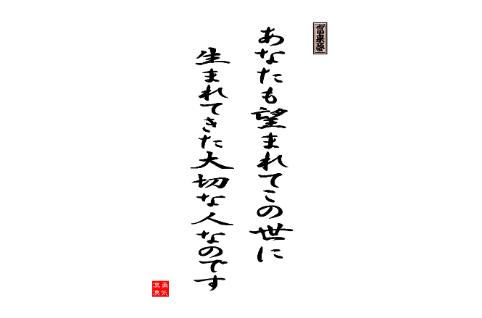 あなたも望まれてこの世に
生まれてきた大切な人なのです